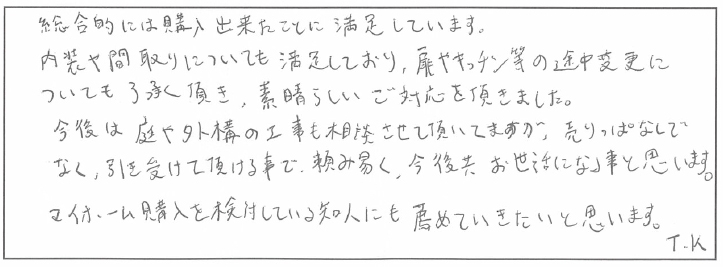 総合的には購入出来たことに満足しています。
内装や間取りについても満足しており、扉やキッチン等の途中変更に
ついても了承く頂き、素晴らしいご対応を頂きました。
今後は庭や外構の工事も相談させて頂いてますが、売りっぱなしで
なく、引き受けて頂ける事で、頼み易く、今後共お世話になる事と思います。
マイホーム購入を検討している知人にも薦めていきたいと思います。
T.K